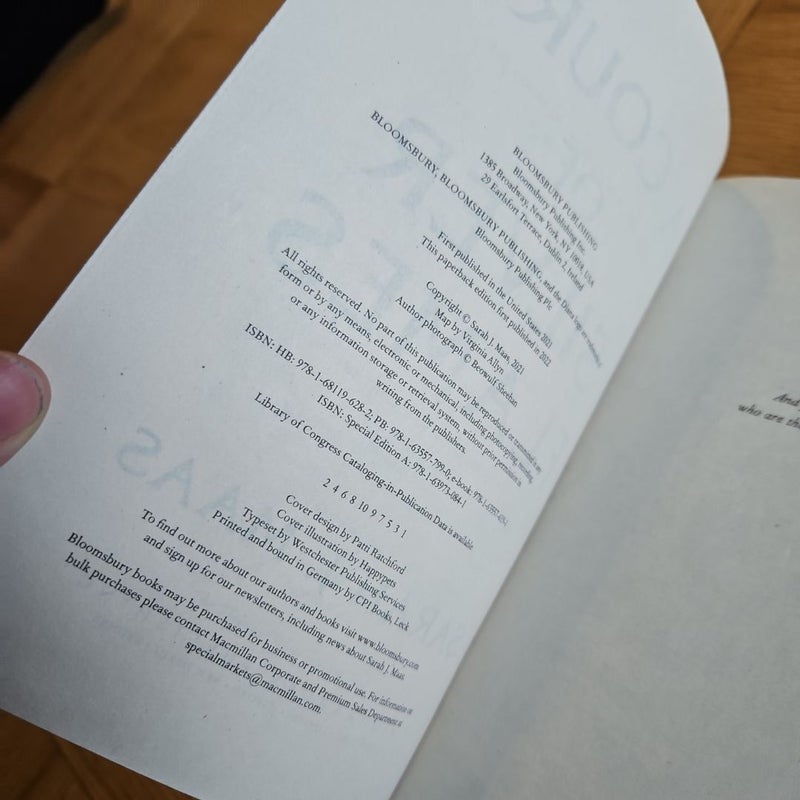 BLOOMSBURY PUBLISHING
Bloomsbury Publishing Inc.
1385 Broadway, New York, NY 10018, USA
29 Earlsfort Terrace, Dublin 2, Ireland
BLOOMSBURY, BLOOMSBURY PUBLISHING, and the Diana logo are trademarks of
Bloomsbury Publishing Plc
First published in the United States 2021
This paperback edition first published in 2022
Copyright © Sarah J. Maas, 2021
Map by Virginia Allyn
Author photograph © Beowulf Sheehan
All rights reserved. No part of this publication may be reproduced or transmitted in any
form or by any means, electronic or mechanical, including photocopying, recording,
or any information storage or retrieval system, without prior permission in
writing from the publishers.
ISBN: HB: 978-1-68119-628-2; PB: 978-1-63557-799-0; e-book:
ISBN: Special Edition A: 978-1-63973-084-1
Library of Congress Cataloging-in-Publication Data is available
2 4 6 8 10 9 7 5 3 1
Cover design by Patti Ratchford
Cover illustration by Happypets
Typeset by Westchester Publishing Services
Printed and bound in Germany by CPI Books, Leck
To find out more about our authors and books visit www.bloomsbury.com
and sign up for our newsletters, including news about Sarah J. Maas.
Bloomsbury books may be purchased for business or promotional use. For information on
bulk purchases please contact Macmillan Corporate and Premium Sales Department at
specialmarkets@macmillan.com.
And
who are